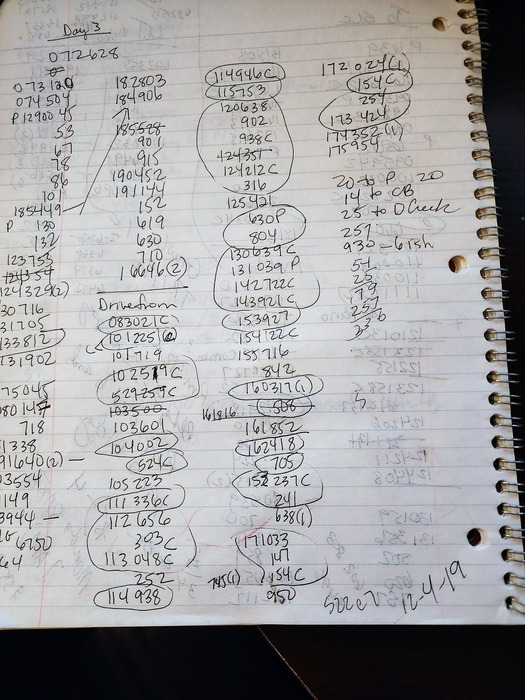 Day 3
072628
073120
074504
P 12900 45
53
67
78
86
701
185449
P 130
132
123753
124354
124329(2)
30716
31705
133812
731902
75045
80145
718
1338
91640(2) —
3554
1149
3944 —
6750
64
182803
184906
185528
901
915
190452
191144
152
619
630
710
16646(2)
Drive from
083021C
101225
101719
102519C
529259C
103500
103601
104002
524C
105223
111336C
112656
303C
113048C
252
114938
114946C
115753
120638
902
938C
124351
124212C
316
125421
630P
804
130639C
131039P
142722C
143921C
153927
154722C
155716
842
160317(1)
161816 508
161852
162418
705
152237C
241
638(1)
171033
147
745(1) 154C
950
172024(1)
154C
254
173424
174352(1)
175954
20 to P 20
14 to CB
25 to D Creek
257
930 - 6 Fish
54
25
179
257
5
522 c 7 12-4-19